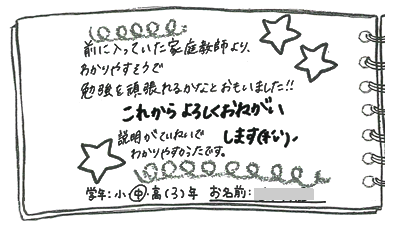 前に入っていた家庭教師より、
わかりやすそうで
勉強を頑張れるかなとおもいました!!
これからよろしくおねがい
します(^^)♪
説明がていねいで
わかりやすかったです。
学年:小・中・高(3)年 お名前: